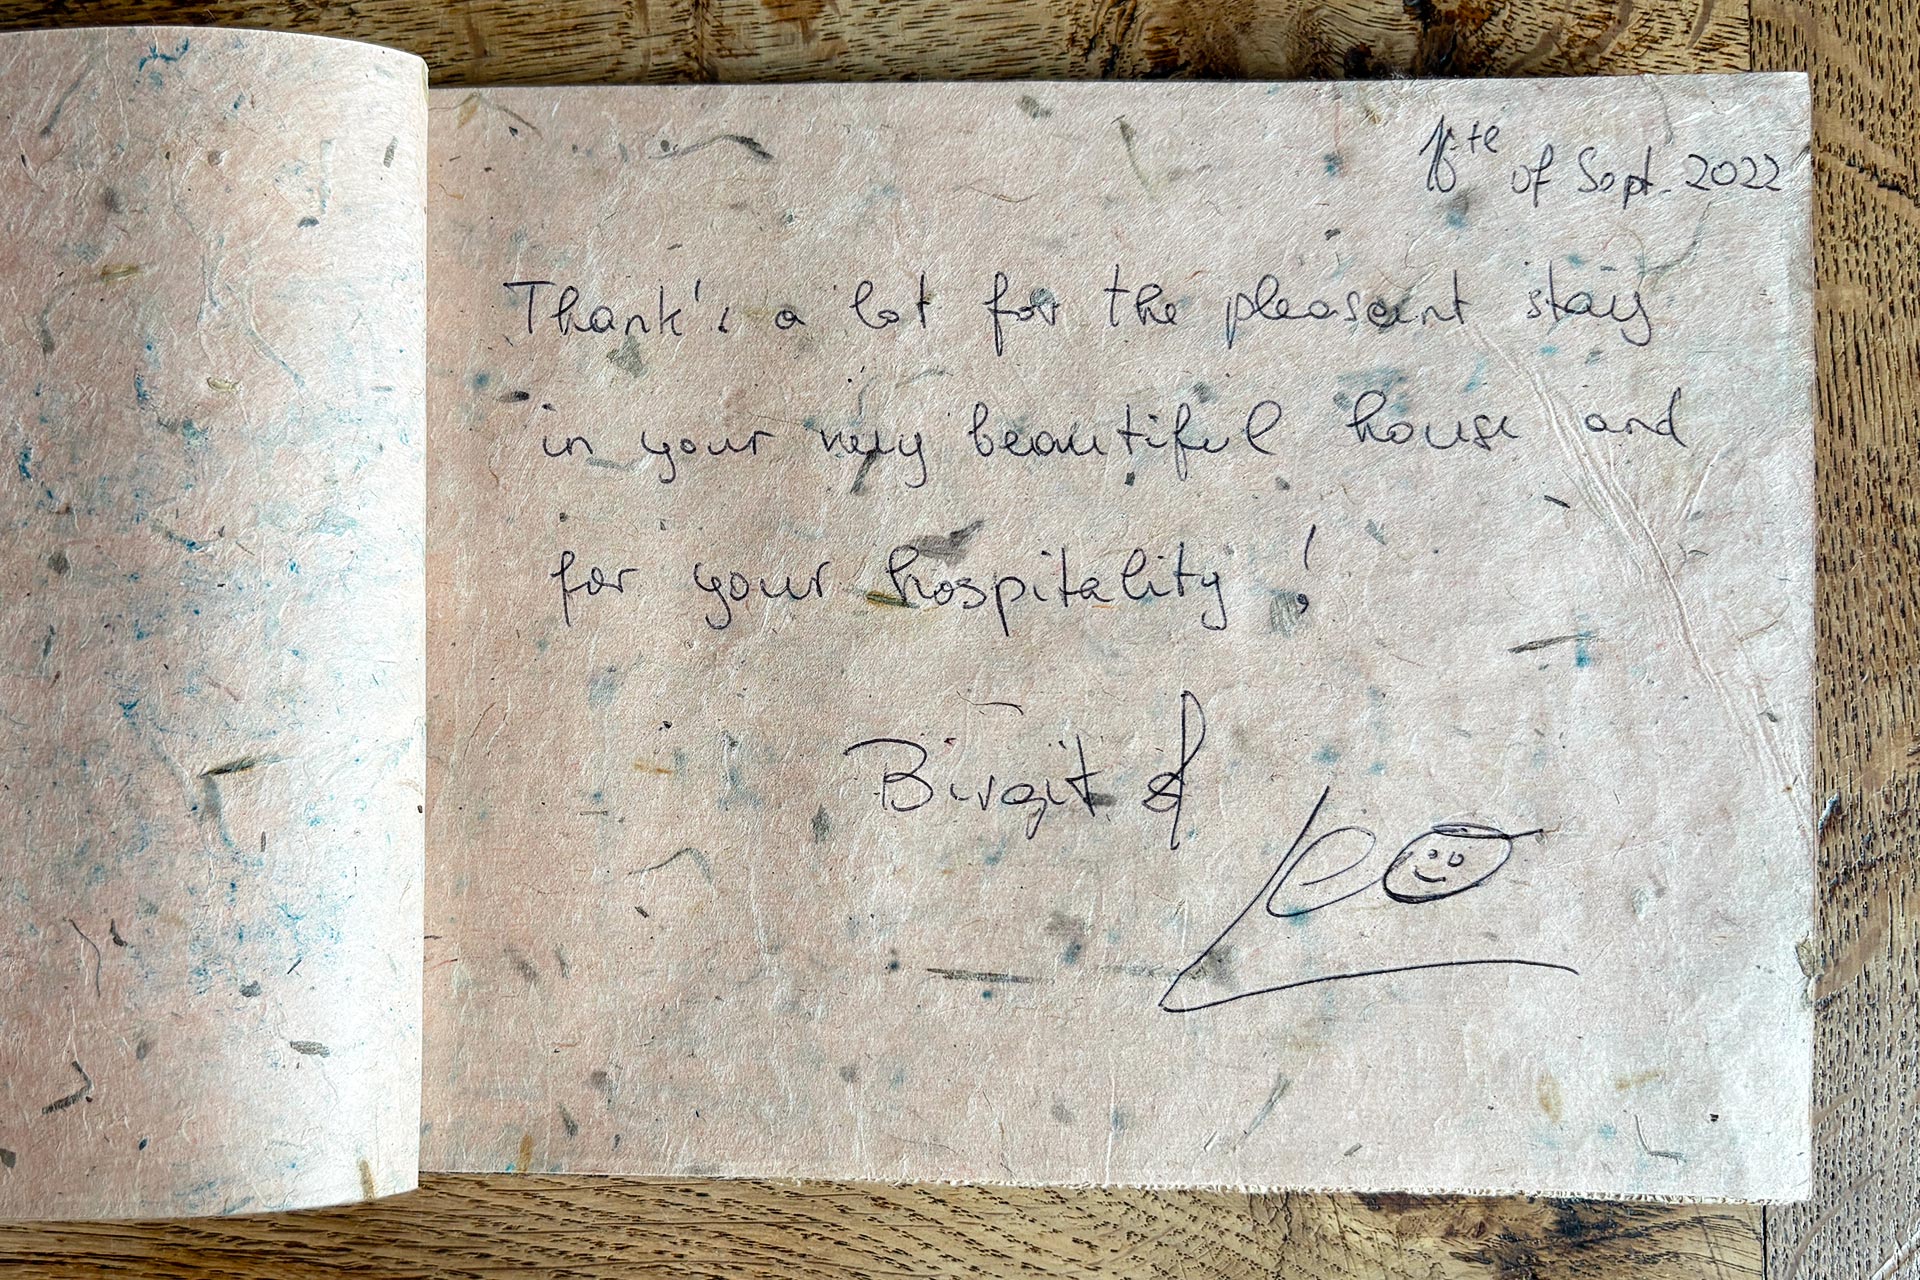 of Sept. 2022
Thank's a lot for the pleasant stay
in your very beautiful house and
for your hospitality!
Birgit &
Leo